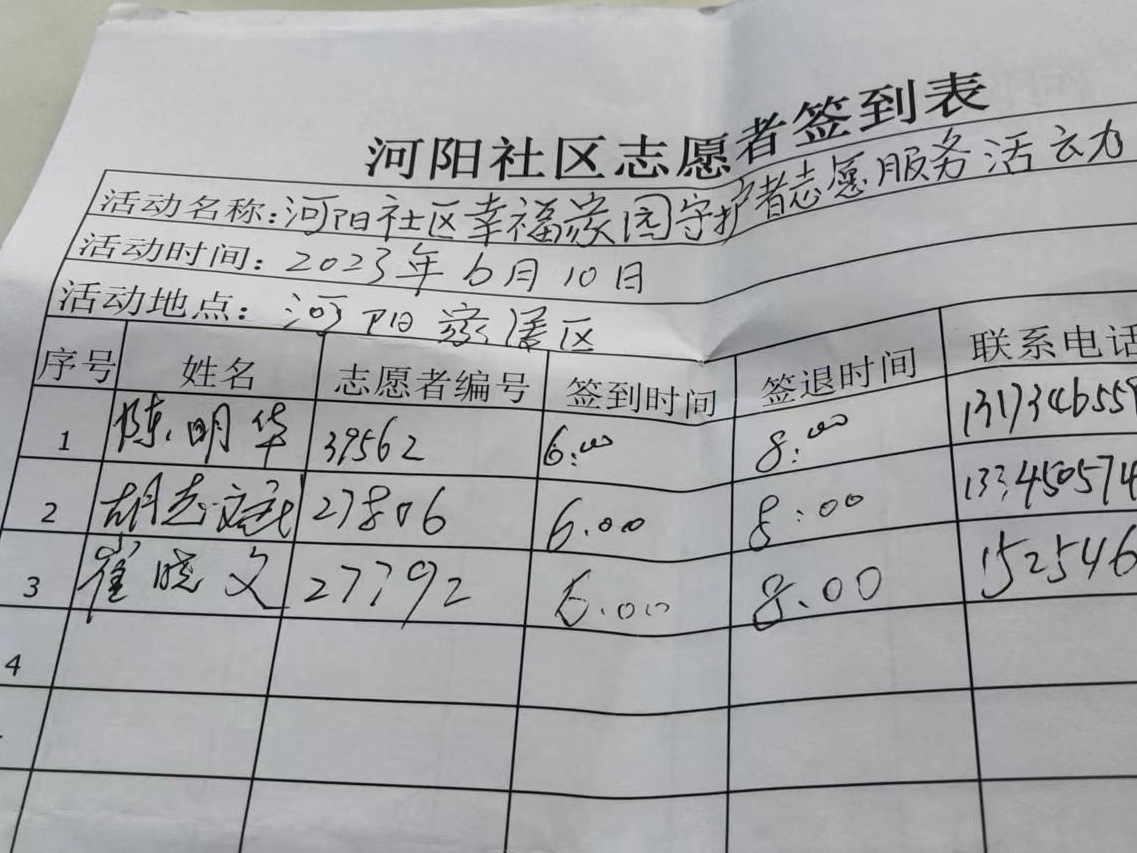 河阳社区志愿者签到表
活动名称:河阳社区幸福家园守护者志愿服务活动
活动时间:2023年6月10日
活动地点:河阳家属区
序号 姓名 志愿者编号 签到时间 签退时间 联系电话
1 陈明华 39562 6:00 8:00 131734655
2 胡志斌 27806 6.00 8:00 133450574
3 崔晓文 27792 6.00 8.00 152546
4